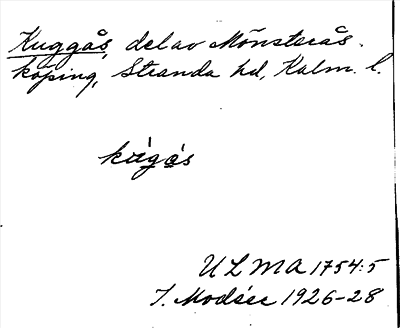 Kuggås, del av Mönsterås
köping, Stranda hd, Kalm. l.
kúgås
ULMA 1754:5
I. Modéer 1926-28